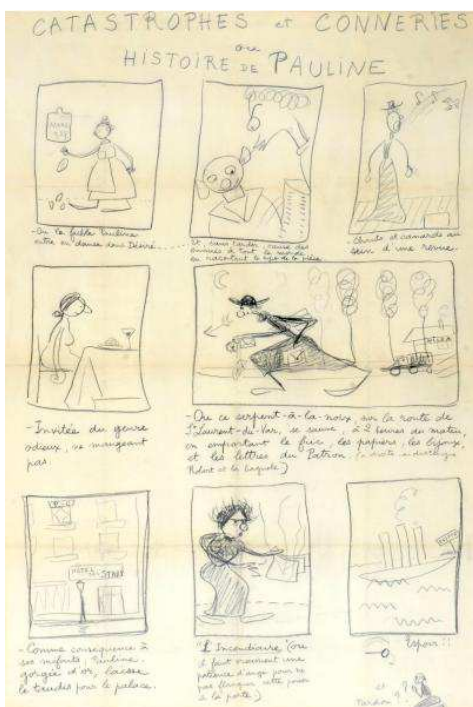 CATASTROPHES et CONNERIES
ou
HISTOIRE DE PAULINE
- Où la faible Pauline
entre en danse dans Désiré.....
Et, sans tarder, cause des
ennuis à tout le monde
en racontant le sujet de la pièce
- Chante et camarde au
sein d'une revue.
- Invitée du genre
odieux, ne mangeant
pas.
- Où ce serpent-à-la-noix, sur la route de
St Laurent-du-Var, se sauve, à 2 heures du matin,
en emportant le fric, les papiers, les bijoux,
et les lettres du Patron. (à droite on distingue
Robert et la bagnole.)
HOTEL STAR
- Comme conséquence à
ses méfaits, Pauline,
gorgée d'or, laisse
le taudis pour le palace.
"L'Incendiaire" (où
il faut vraiment une
patience d'ange pour ne
pas flanquer cette
à la porte.)
Espoir!!
et
Pardon??